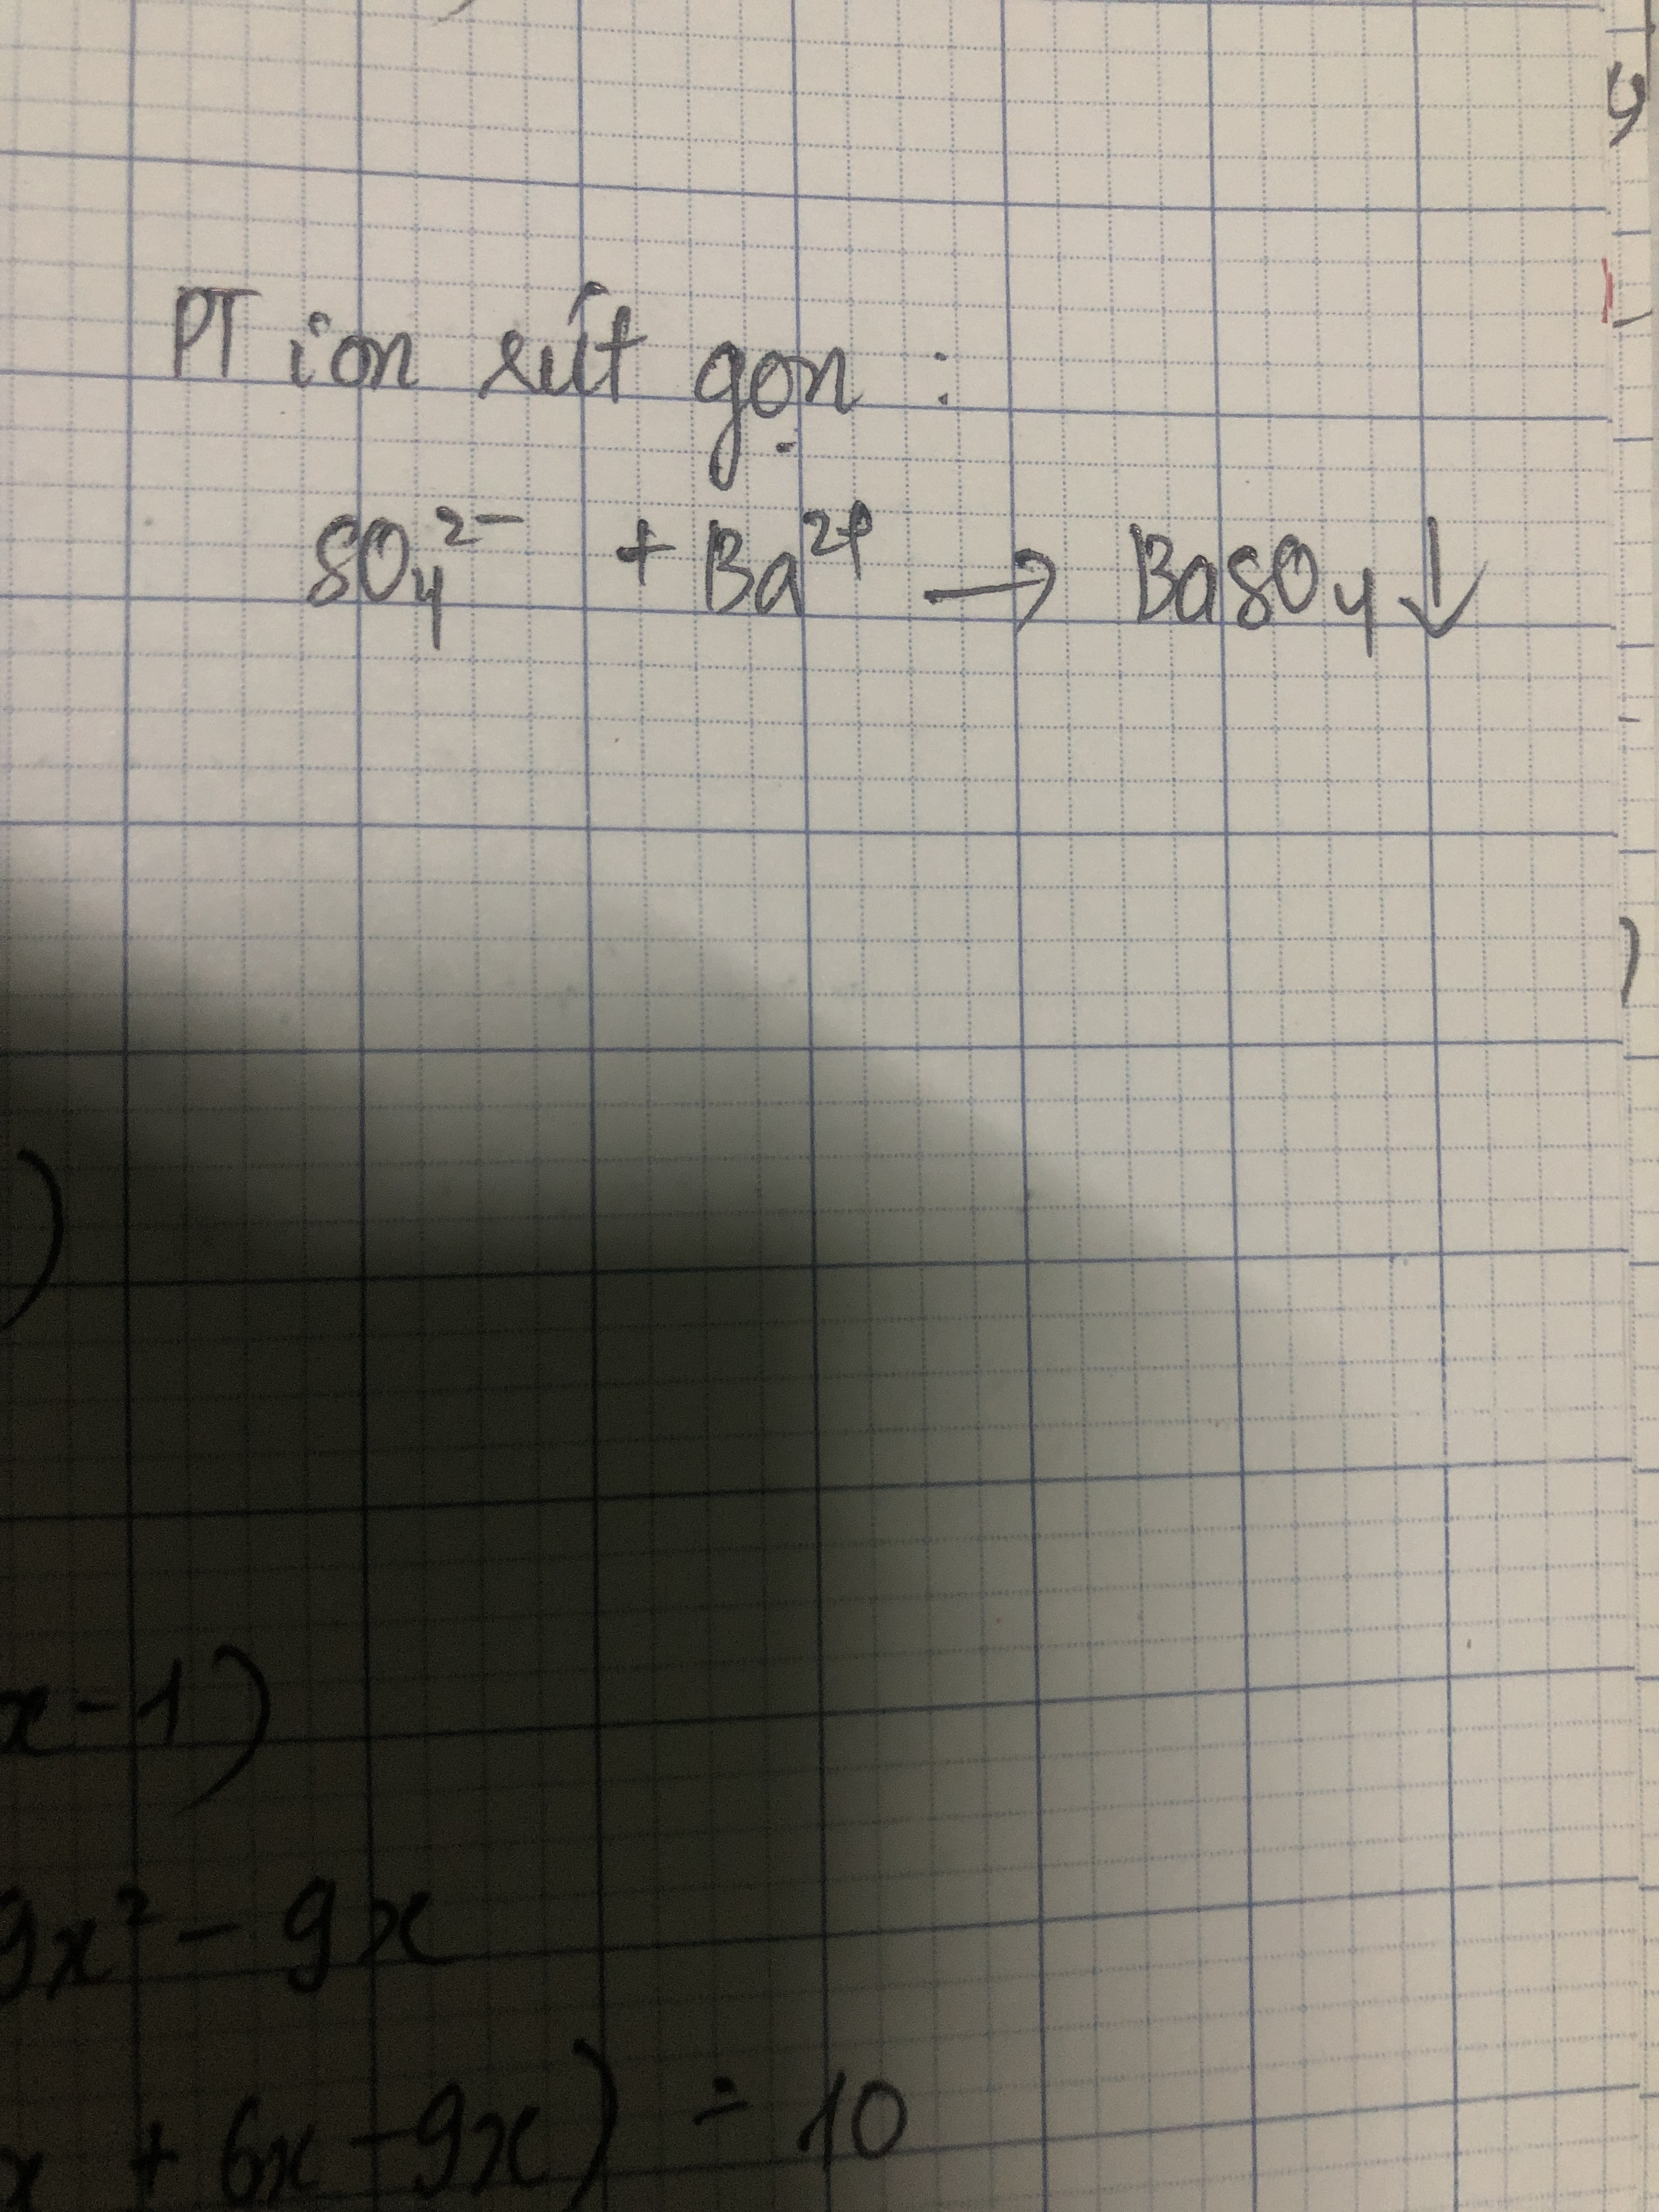 PT ion rút gọn :
SO₄²⁻ + Ba²⁺ → BaSO₄↓
)
x-1)
9x² - 9x
x + 6x - 9x) = 10